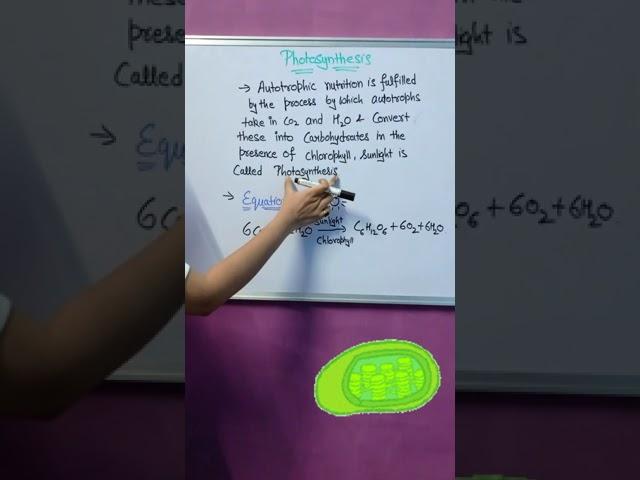 Photosynthesis
→ Autotrophic nutrition is fulfilled
by the process by which autotrophs
take in CO2 and H2O & Convert
these into Carbohydrates in the
presence of Chlorophyll, Sunlight is
Called Photosynthesis
→ Equation
Sunlight
H2O → C6H12O6 + 6O2 + 6H2O
Chlorophyll